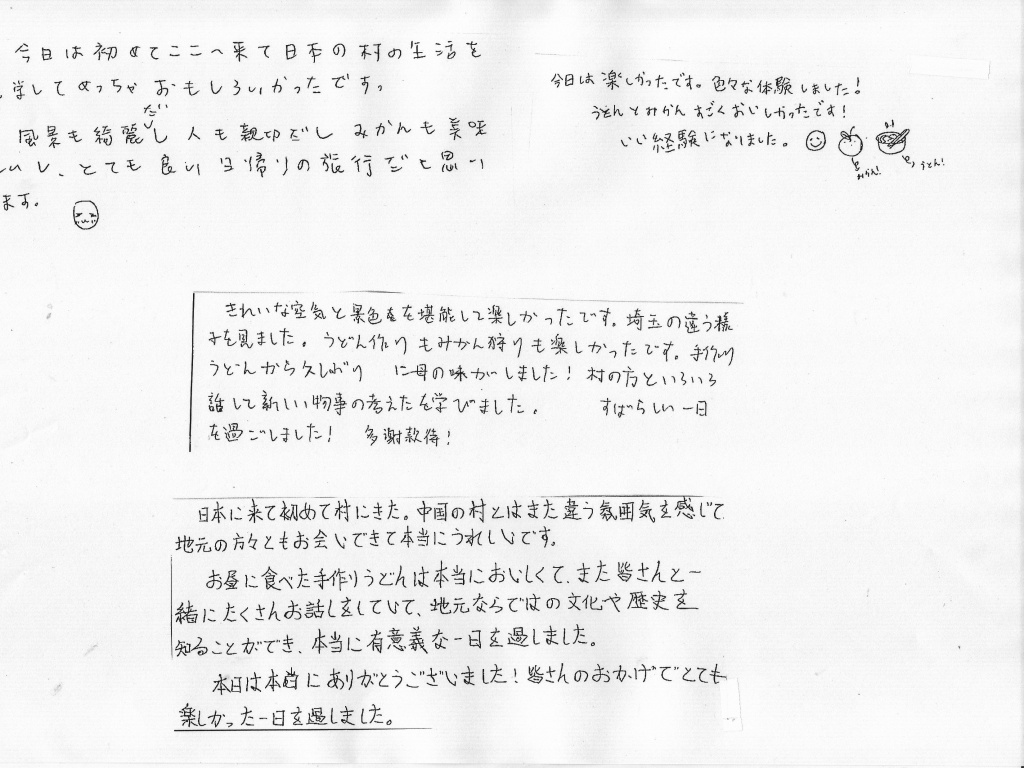 今日は初めてここへ来て日本の村の生活を
学してめっちゃおもしろいかったです。
だ
風景も綺麗し 人も親切だし みかんも美味
しいし、とても良い日帰りの旅行だと思い
ます。
今日は楽しかったです。色々な体験しました!
うどんとみかんすごくおいしかったです!
いい経験になりました。
みかん!
うどん!
きれいな空気と景色を堪能して楽しかったです。埼玉の違う様
子を見ました。うどん作りもみかん狩りも楽しかったです。手作り
うどんから久しぶり に母の味がしました! 村の方といろいろ
話して新しい物事の考えたを学びました。 すばらしい一日
を過ごしました! 多謝款待!
日本に来て初めて村にきた。中国の村とはまた違う雰囲気を感じて
地元の方々ともお会いできて本当にうれしいです。
お昼に食べた手作りうどんは本当においしくて、また皆さんと一
緒にたくさんお話しをしていて、地元ならではの文化や歴史を
知ることができ、本当に有意義な一日を過しました。
本日は本当にありがとうございました!皆さんのおかげでとても
楽しかった一日を過しました。